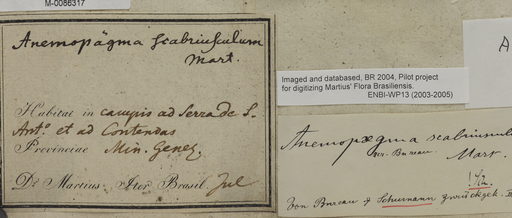 M-0086317
Anemopägma scabriusculum
Mart.
Habitat in campis ad Serra de S.
Ant. et ad Contendas
Provinciae Min. Gener.
Dr. Martius Iter Brasil. Jul
Imaged and databased, BR 2004, Pilot project
for digitizing Martius' Flora Brasiliensis.
ENBI-WP13 (2003-2005)
A
Anemopægma scabriuscul
Bureau. Mart.
von Bureau & Schumann zurückgek.